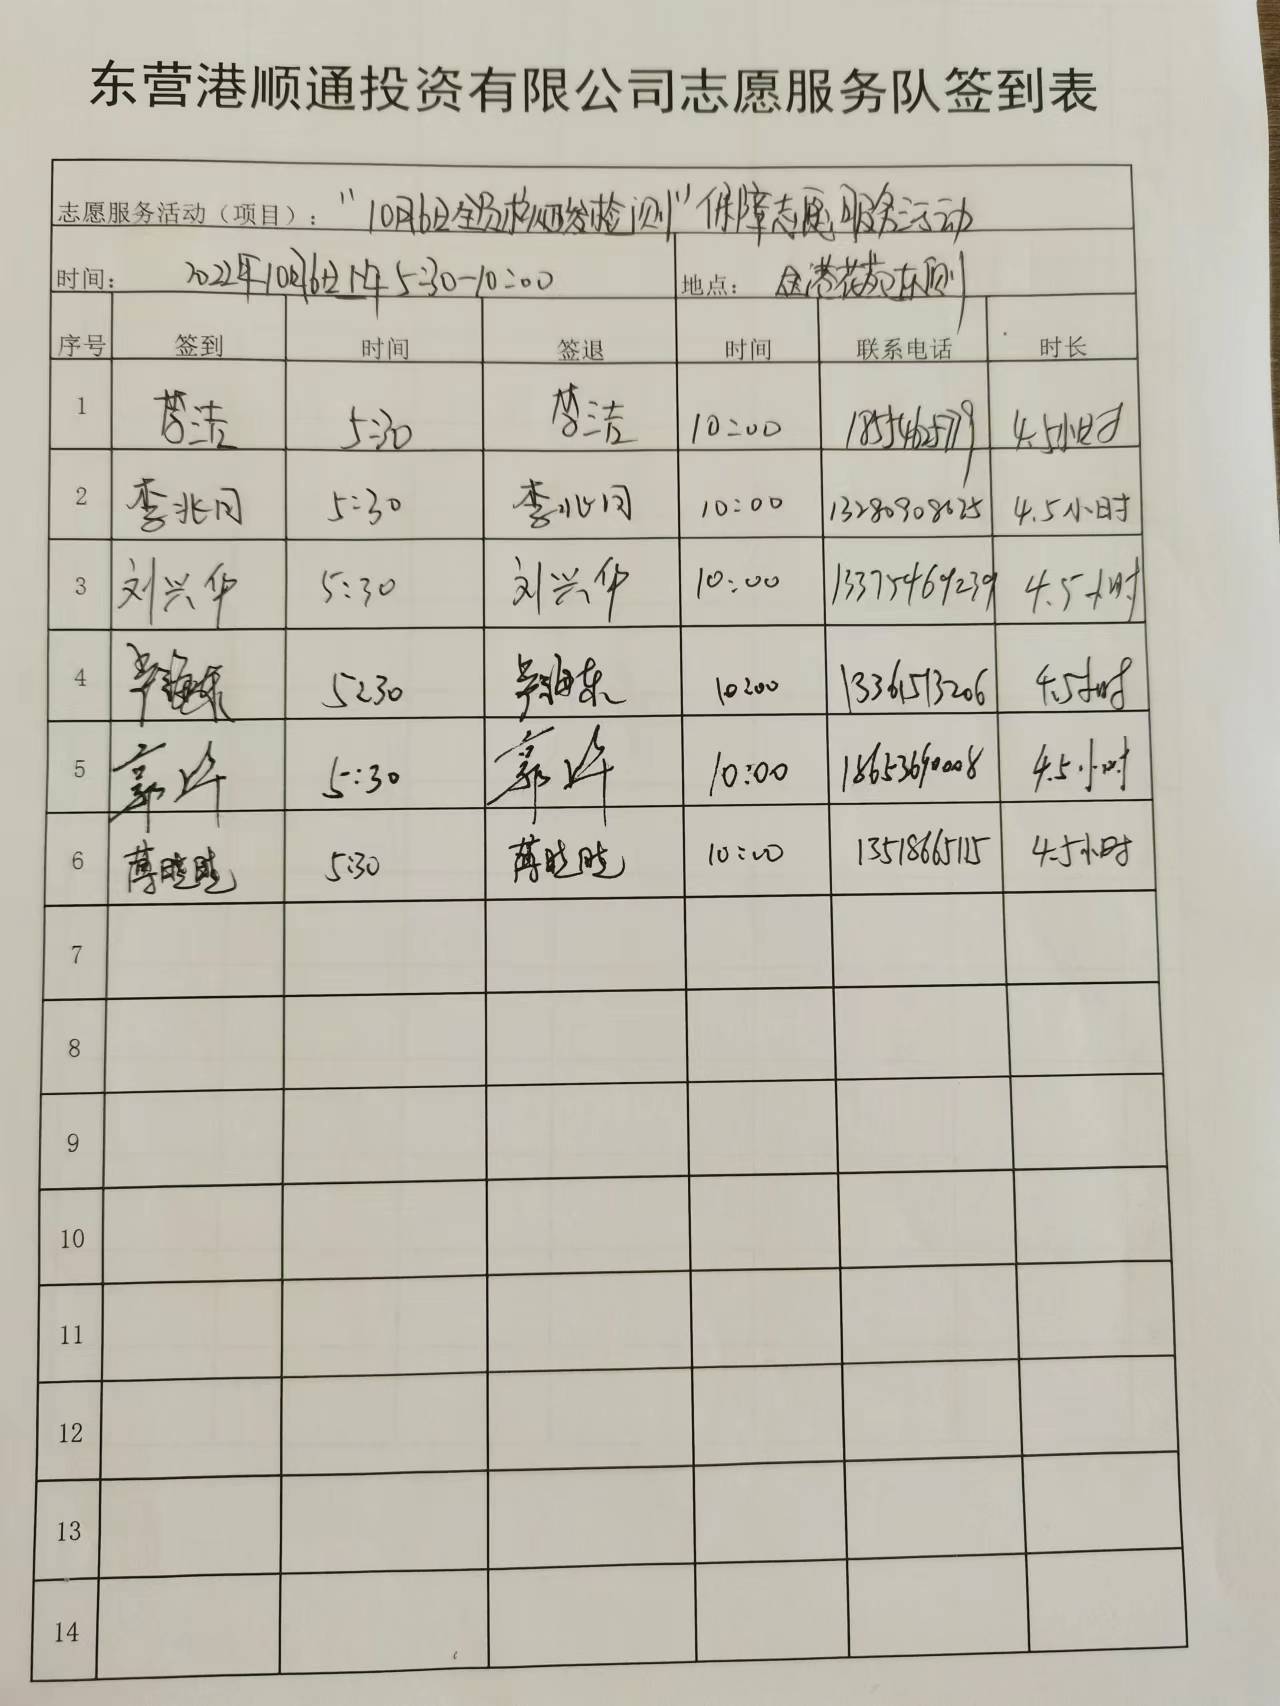 东营港顺通投资有限公司志愿服务队签到表
志愿服务活动（项目）："10月6日全员核酸检测"保障志愿服务活动
时间： 2022年10月6日上午5:30-10:00 地点： 金港花苑东侧
序号 签到 时间 签退 时间 联系电话 时长
1 5:30 10:00 4.5小时
2 李兆同 5:30 李兆同 10:00 13280908625 4.5小时
3 刘兴华 5:30 刘兴华 10:00 13375469239 4.5小时
4 5:30 10:00 13361513206 4.5小时
5 5:30 10:00 18653690008 4.5小时
6 薄晓晓 5:30 薄晓晓 10:00 13518665115 4.5小时
7
8
9
10
11
12
13
14